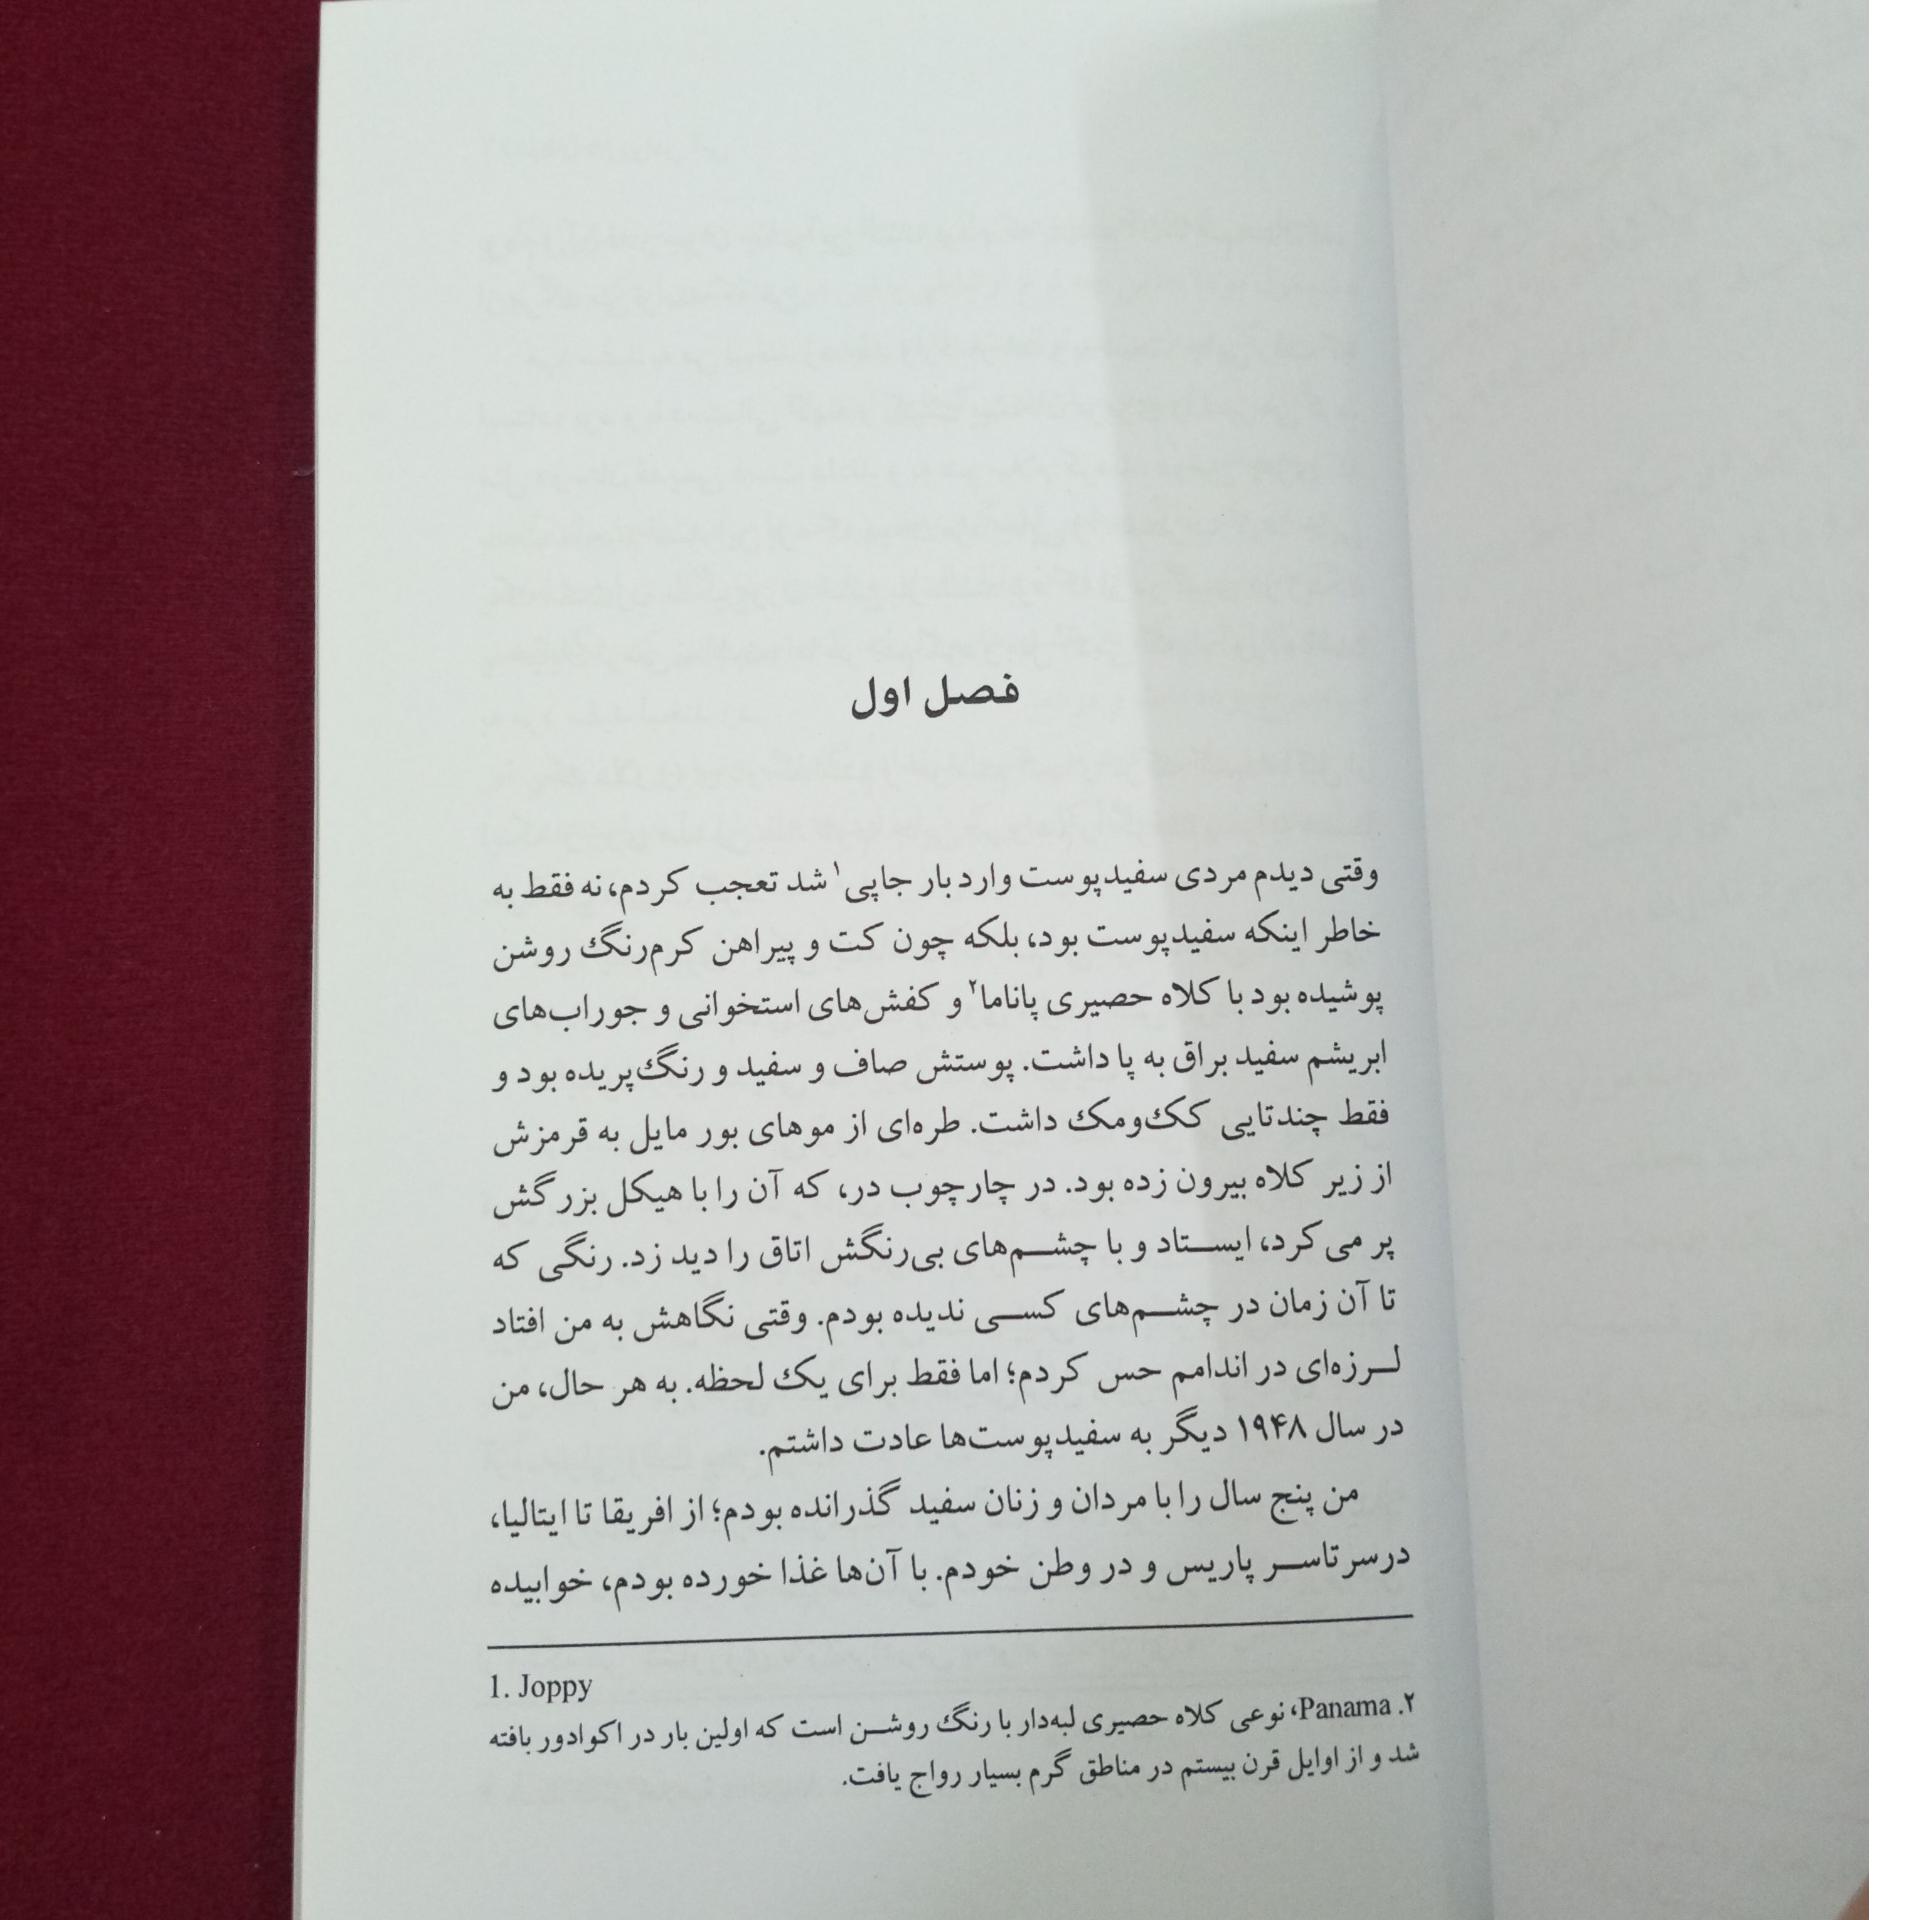 فصل اول
وقتی دیدم مردی سفیدپوست وارد بار جاپی۱ شد تعجب کردم، نه فقط به
خاطر اینکه سفیدپوست بود، بلکه چون کت و پیراهن کرم‌رنگ روشن
پوشیده بود با کلاه حصیری پاناما۲ و کفش‌های استخوانی و جوراب‌های
ابریشم سفید براق به پا داشت. پوستش صاف و سفید و رنگ‌پریده بود و
فقط چندتایی کک‌ومک داشت. طره‌ای از موهای بور مایل به قرمزش
از زیر کلاه بیرون زده بود. در چارچوب در، که آن را با هیکل بزرگش
پر می‌کرد، ایستاد و با چشم‌های بی‌رنگش اتاق را دید زد. رنگی که
تا آن زمان در چشم‌های کسی ندیده بودم. وقتی نگاهش به من افتاد
لرزه‌ای در اندامم حس کردم؛ اما فقط برای یک لحظه. به هر حال، من
در سال ۱۹۴۸ دیگر به سفیدپوست‌ها عادت داشتم.
من پنج سال را با مردان و زنان سفید گذرانده بودم؛ از افریقا تا ایتالیا،
درسرتاسر پاریس و در وطن خودم. با آن‌ها غذا خورده بودم، خوابیده
1. Joppy
۲. Panama، نوعی کلاه حصیری لبه‌دار با رنگ روشن است که اولین بار در اکوادور بافته
شد و از اوایل قرن بیستم در مناطق گرم بسیار رواج یافت.